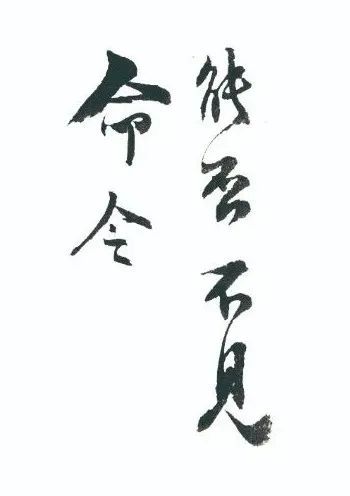 能否不見
命令